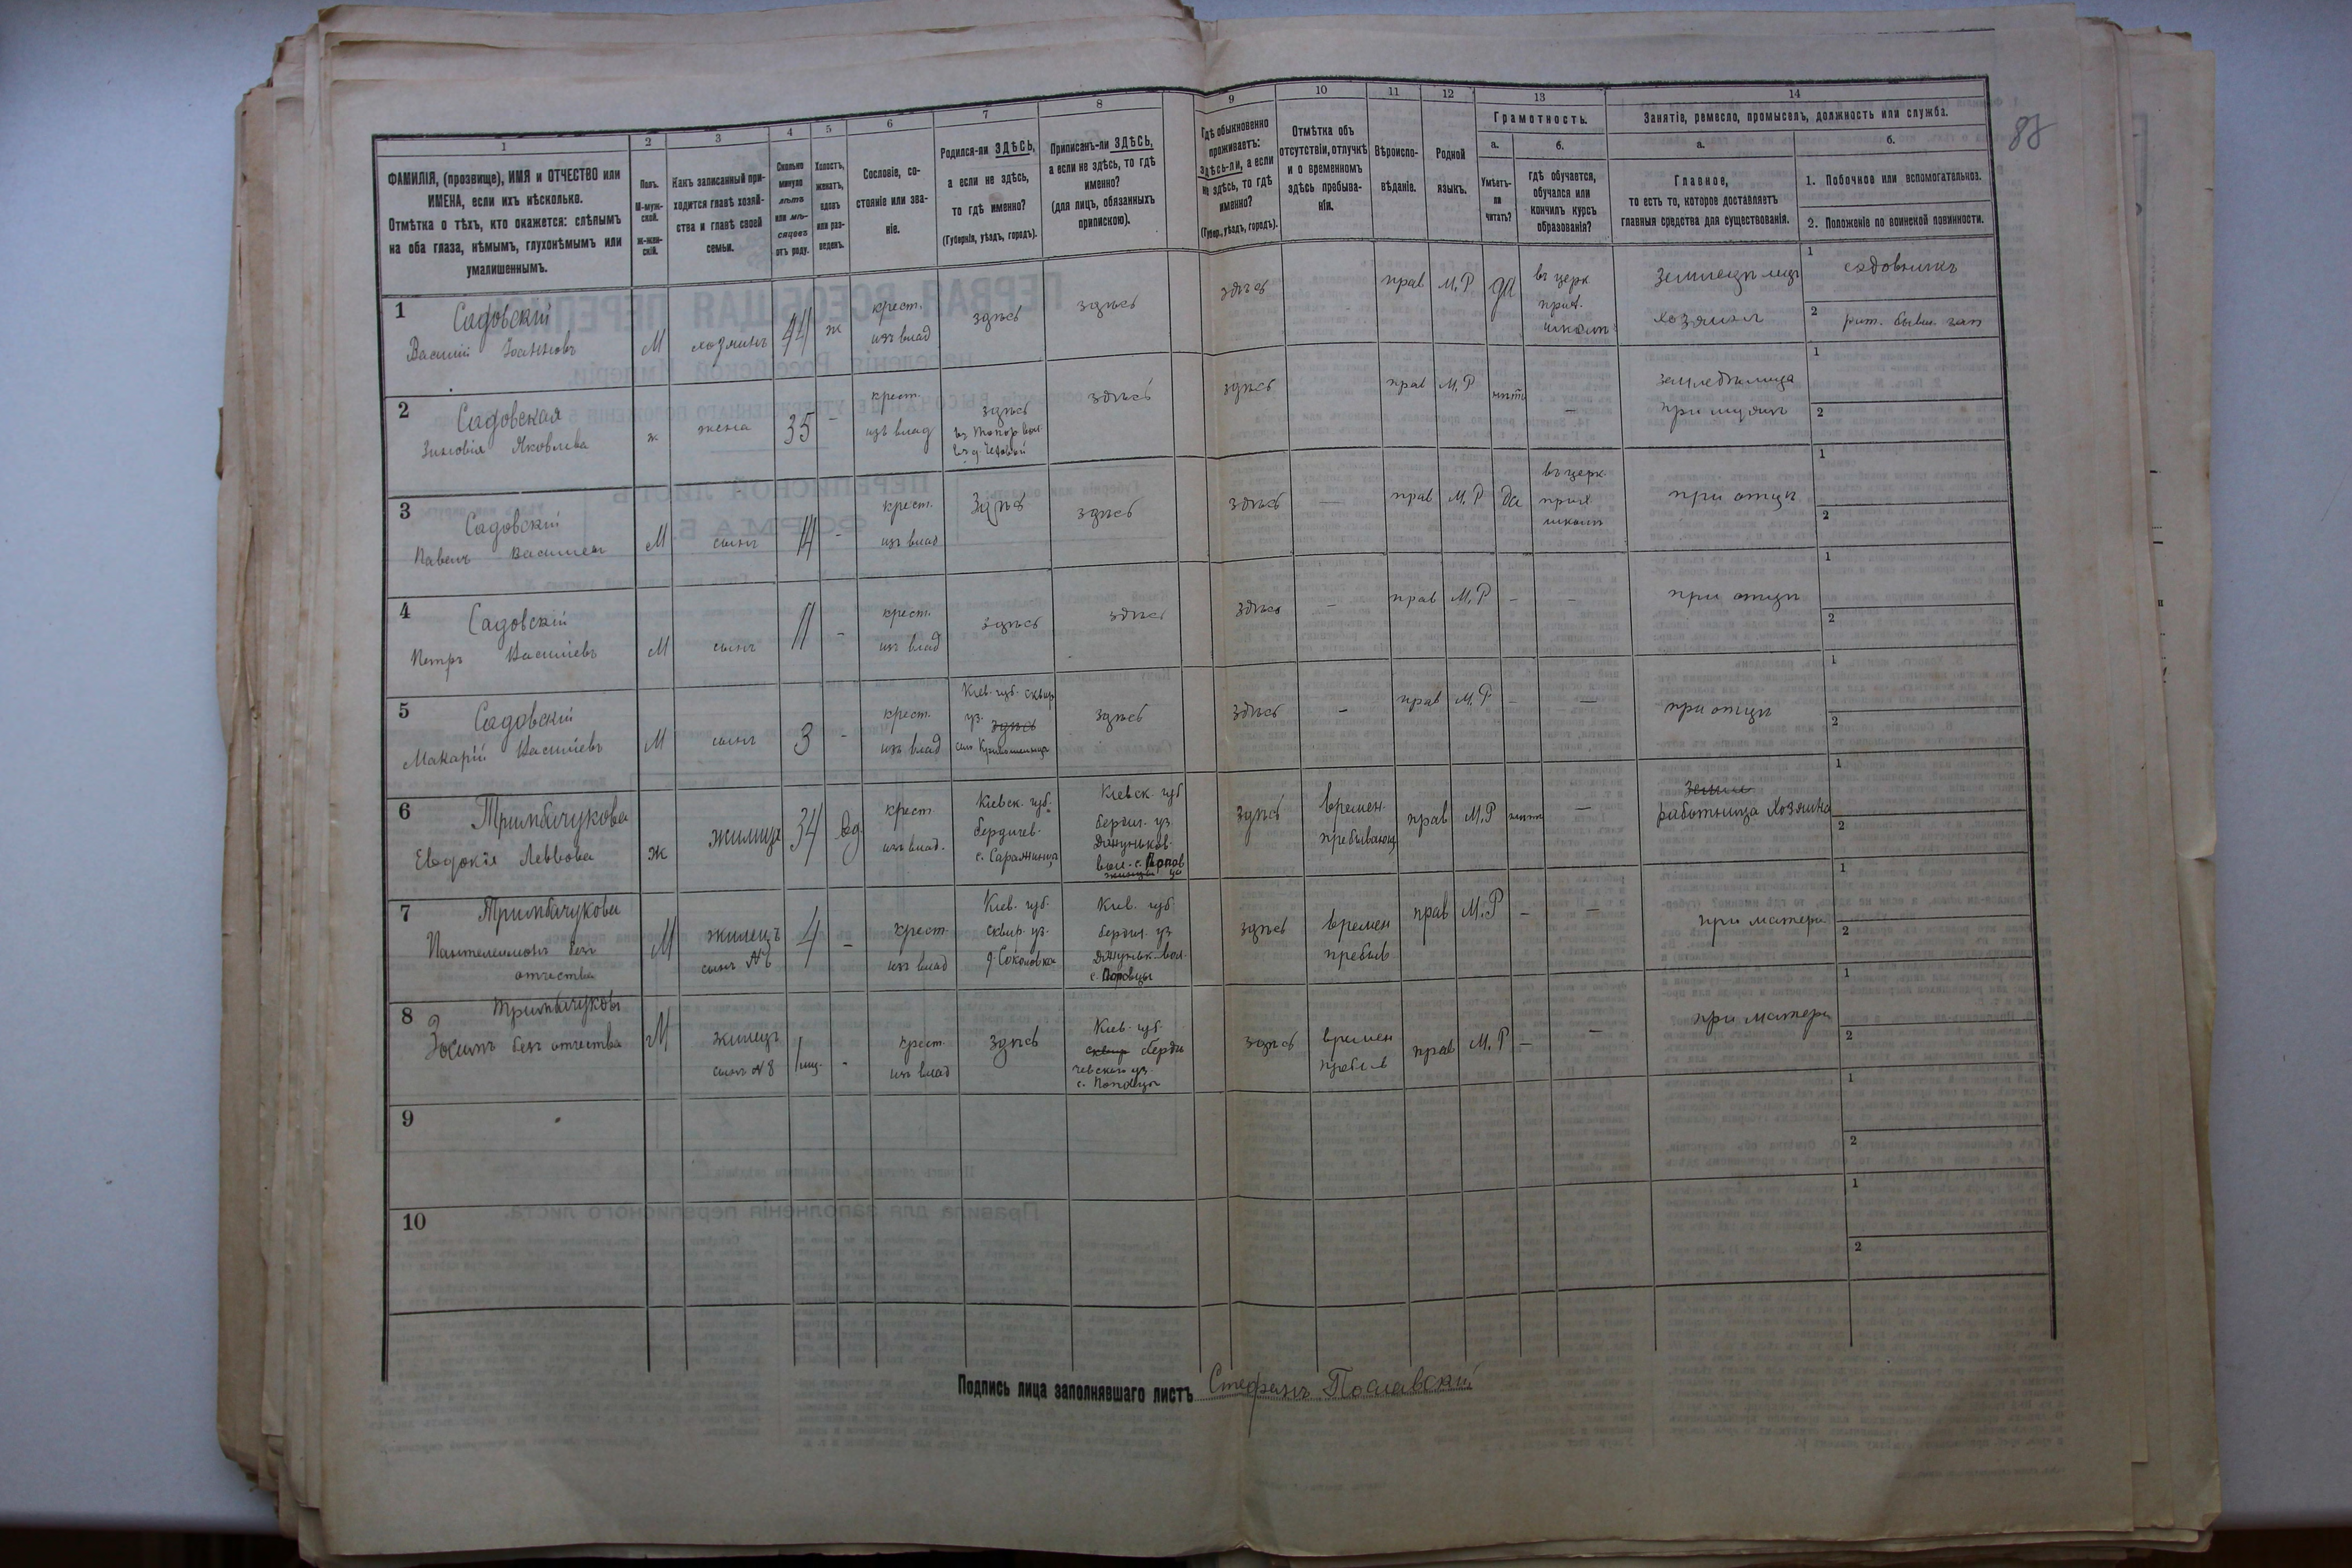 88
1
2
3
4
5
6
7
8
9
10
11
12
13
14
ФАМИЛІЯ, (прозвище), ИМЯ и ОТЧЕСТВО или
ИМЕНА, если ихъ нѣсколько.
Отмѣтка о тѣхъ, кто окажется: слѣпымъ
на оба глаза, нѣмымъ, глухонѣмымъ или
умалишеннымъ.
Полъ.
М-муж-
ской.
Ж-жен-
скій.
Какъ записанный при-
ходится главѣ хозяй-
ства и главѣ своей
семьи.
Сколько
минуло
лѣтъ
или мѣ-
сяцевъ
отъ роду.
Холостъ,
женатъ,
вдовъ
или раз-
веденъ.
Сословіе, со-
стояніе или зва-
ніе.
Родился-ли ЗДѢСЬ,
а если не здѣсь,
то гдѣ именно?
(Губернія, уѣздъ, городъ).
Приписанъ-ли ЗДѢСЬ,
а если не здѣсь, то гдѣ
именно?
(для лицъ, обязанныхъ
припискою).
Гдѣ обыкновенно
проживаетъ:
Здѣсь-ли, а если
не здѣсь, то гдѣ
именно?
(Губер., уѣздъ, городъ).
Отмѣтка объ
отсутствіи, отлучкѣ
и о временномъ
здѣсь пребыва-
ніи.
Вѣроиспо-
вѣданіе.
Родной
языкъ.
Грамотность.
а.
Умѣетъ-
ли
читать?
б.
гдѣ обучается,
обучался или
кончилъ курсъ
образованія?
Занятіе, ремесло, промыселъ, должность или служба.
а.
Главное,
то есть то, которое доставляетъ
главныя средства для существованія.
б.
1. Побочное или вспомогательное.
2. Положеніе по воинской повинности.
1
Садовскій
Василій Іоанновъ
М
хозяинъ
44
ж
крест.
изъ влад
здѣсь
здѣсь
здѣсь
прав
М.Р
да
въ церк
прих.
школѣ
хозяинъ
1
садовникъ
2
2
Садовская
Зиновія Яковлева
ж
жена
35
-
крест.
изъ влад
здѣсь
здѣсь
здѣсь
прав
М.Р
нѣтъ
—
земледѣлица
при мужѣ
1
2
3
Садовскій
Павелъ Васильев
М
сынъ
14
-
крест.
изъ влад
Здѣсь
здѣсь
здѣсь
—
прав
М.Р
да
въ церк
прих
школѣ
при отцѣ
1
2
4
Садовскій
Петръ Васильевъ
М
сынъ
11
-
крест.
изъ влад
здѣсь
здѣсь
здѣсь
—
прав
М.Р
-
-
при отцѣ
1
2
5
Садовскій
Макарій Васильевъ
М
сынъ
3
-
крест.
изъ влад
Кіев. губ. сквир
уз. здѣсь
здѣсь
здѣсь
-
прав
М.Р
-
—
при отцѣ
1
2
6
Тримбачукова
Евдокія Левкова
ж
жилица
34
вд
крест
изъ влад.
Кіевск. губ.
бердичев.
Кіевск. губ
бердич. уз.
здѣсь
времен.
пребывающ
прав
М.Р
нѣтъ
—
работница хозяина
1
2
7
Тримбачукова
Пантелеимонъ безъ
отчества
М
жилецъ
сынъ №6
4
-
крест
изъ влад
Кіев. губ.
сквир. уз.
д. Соколовка
Кіев. губ.
бердич. уз
с. Поповцы
здѣсь
времен
пребыв
прав
М.Р
-
—
при матери
1
2
8
Тримбачуковъ
Зосимъ безъ отчества
М
жилецъ
сынъ №8
-
крест
изъ влад
здѣсь
Кіев. губ.
сквир берди
чевского уз.
с. Поповцы
здѣсь
времен
пребыв
прав
М.Р
-
-
при матери
1
2
9
1
2
10
1
2
Подпись лица заполнявшаго листъ Стефанъ Пославскій